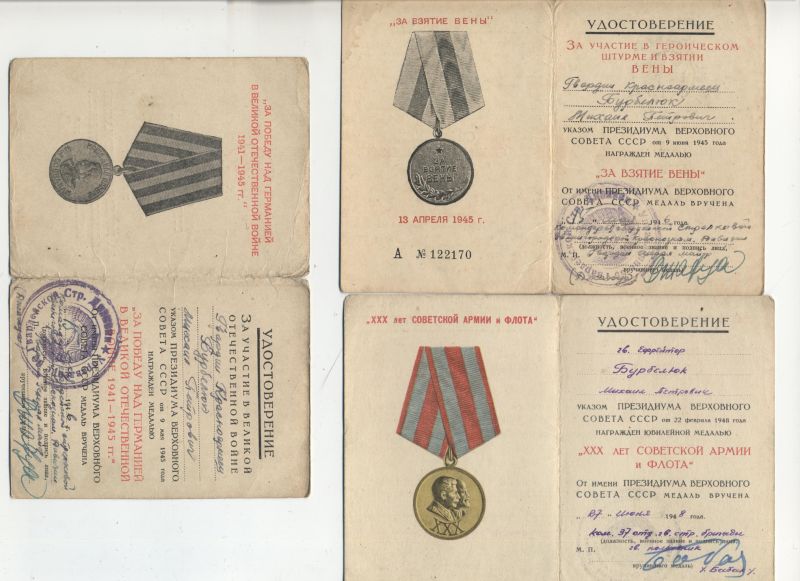 "ЗА ПОБЕДУ НАД ГЕРМАНИЕЙ
В ВЕЛИКОЙ ОТЕЧЕСТВЕННОЙ ВОЙНЕ
1941—1945 гг."
УДОСТОВЕРЕНИЕ
ЗА УЧАСТИЕ В ВЕЛИКОЙ
ОТЕЧЕСТВЕННОЙ ВОЙНЕ
Гвардии Красноармеец
Бурбелюк
Михаил Петрович
УКАЗОМ ПРЕЗИДИУМА ВЕРХОВНОГО
СОВЕТА СССР от 9 мая 1945 года
НАГРАЖДЕН МЕДАЛЬЮ
"ЗА ПОБЕДУ НАД ГЕРМАНИЕЙ
В ВЕЛИКОЙ ОТЕЧЕСТВЕННОЙ
ВОЙНЕ 1941—1945 гг."
От имени ПРЕЗИДИУМА ВЕРХОВНОГО
СОВЕТА СССР МЕДАЛЬ ВРУЧЕНА
"ЗА ВЗЯТИЕ ВЕНЫ"
ЗА
ВЗЯТИЕ
ВЕНЫ
13 АПРЕЛЯ 1945 г.
А № 122170
УДОСТОВЕРЕНИЕ
ЗА УЧАСТИЕ В ГЕРОИЧЕСКОМ
ШТУРМЕ И ВЗЯТИИ
ВЕНЫ
Гвардии Красноармеец
Бурбелюк
Михаил Петрович
УКАЗОМ ПРЕЗИДИУМА ВЕРХОВНОГО
СОВЕТА СССР от 9 июня 1945 года
НАГРАЖДЕН МЕДАЛЬЮ
"ЗА ВЗЯТИЕ ВЕНЫ"
От имени ПРЕЗИДИУМА ВЕРХОВНОГО
СОВЕТА СССР МЕДАЛЬ ВРУЧЕНА
1946 года
(должность, военное звание и подпись лица,
М. П.
вручившего медаль)
"XXX лет СОВЕТСКОЙ АРМИИ и ФЛОТА"
XXX
УДОСТОВЕРЕНИЕ
гв. Ефрейтор
Бурбелюк
Михаил Петрович
УКАЗОМ ПРЕЗИДИУМА ВЕРХОВНОГО
СОВЕТА СССР от 22 февраля 1948 года
НАГРАЖДЕН ЮБИЛЕЙНОЙ МЕДАЛЬЮ
"XXX ЛЕТ СОВЕТСКОЙ АРМИИ
и ФЛОТА"
От имени ПРЕЗИДИУМА ВЕРХОВНОГО
СОВЕТА СССР МЕДАЛЬ ВРУЧЕНА
"27" июня 1948 года.
ком. 37 отд. гв. стр. бригады
(должность, военное звание и подпись лица,
М. П. гв. полковник
вручившего медаль)